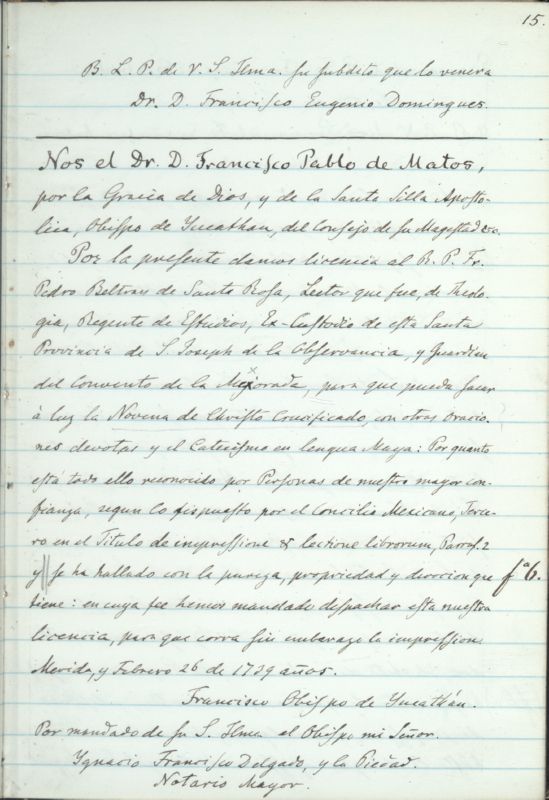 15.
B. L. P. de V. S. Ilma. su subdito que lo venera
Dr. D. Francisco Eugenio Domingues.
Nos el Dr. D. Francisco Pablo de Matos,
por la Gracia de Dios, y de la Santa Silla Aposto-
lica, Obispo de Yucathan, del Consejo de su Magestad &c.
Por la presente damos licencia al R. P. Fr.
Pedro Beltran de Santa Rosa, Lector que fue, de Theolo-
gia, Regente de Estudios, Ex-Custodio de esta Santa
Provincia de S. Joseph de la Observancia, y Guardian
del Convento de la Mexorada, para que pueda sacar
à luz la Novena de Christo Crucificado, con otras oracio-
nes devotas y el Catecismo en lengua Maya: Por quanto
está todo ello reconocido por Personas de nuestra mayor con-
fianza, segun lo dispuesto por el Concilio Mexicano, Terce-
ro en el Titulo de impressione & lectione librorum, Parraf. 2
y se ha hallado con la pureza, propriedad y devocion que fa 6.
tiene: en cuya fee hemos mandado despachar esta nuestra
licencia, para que corra sin embarazo la impression.
Merida, y Febrero 26 de 1739 años.
Francisco Obispo de Yucathán.
Por mandado de su S. Ilma. el Obispo mi Señor.
Ygnacio Francisco Delgado, y la Piedad.
Notario Mayor.